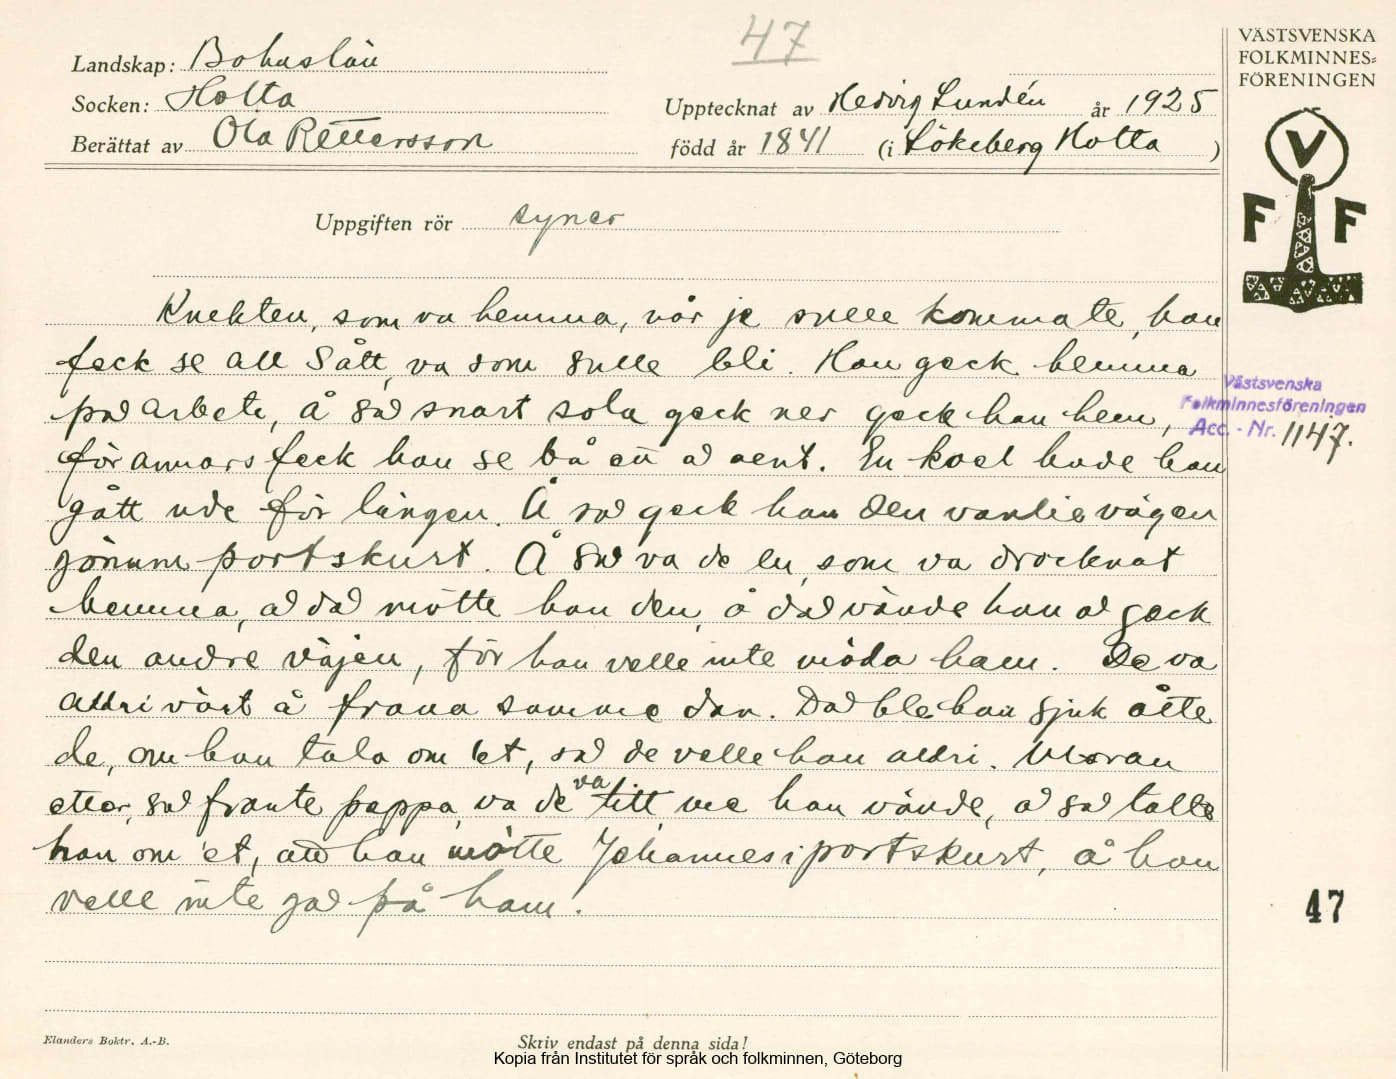 47
VÄSTSVENSKA
FOLKMINNES-
FÖRENINGEN
Landskap: Bohuslän
Socken: Holta
Upptecknat av Hedvig Lundén år 1925
Berättat av Ola Pettersson född år 1841 (i Lökeberg Holta)
V
F F
Uppgiften rör syner
Knekten, som va hemma, når je sulle komma te, han
feck se allt sått, va som sulle bli. Han geck hemma
på arbete, å så snart sola geck ner geck han hem,
för annars feck han se bå ett å aent. En kvel hade han
gått ude för längen. Å så geck han den vanlie vägen
gönum portskurt. Å så va de en, som va drocknat
hemma, å då mötte han den, å då vände han å geck
den andre väjen, för han velle inte möda ham. De va
aldri värt å fråna samme dan. Då ble han sjuk åtte
de, om han tala om 'et, så de velle han aldri. Moran
etter, så frante pappa, va de va titt, me han vände, å så talte
han om 'et, att han mötte Johannes i portskurt, å han
velle inte gå på ham.
Västsvenska
Folkminnesföreningen
Acc. - Nr. 1147.
47
Elanders Boktr. A.-B.
Skriv endast på denna sida!
Kopia från Institutet för språk och folkminnen, Göteborg